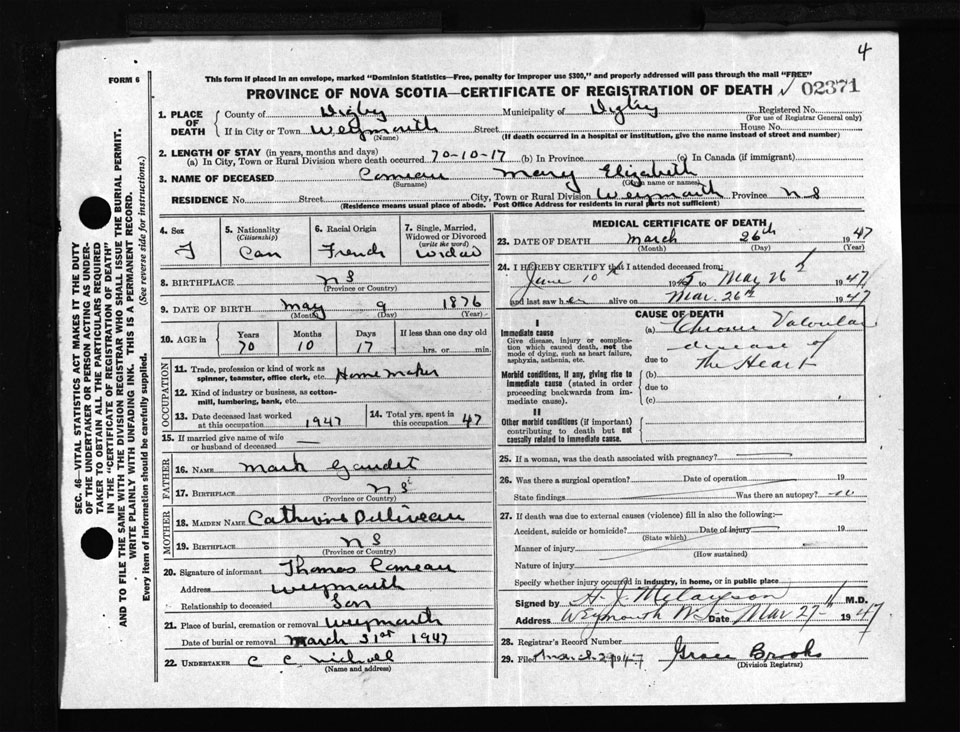 4
FORM 6
This form if placed in an envelope, marked "Dominion Statistics—Free, penalty for improper use $300," and properly addressed will pass through the mail "FREE"
PROVINCE OF NOVA SCOTIA—CERTIFICATE OF REGISTRATION OF DEATH 02371
1. PLACE OF DEATH County of Digby Municipality of Digby Registered No.
(For use of Registrar General only)
If in City or Town Weymouth Street House No.
(Name) (If death occurred in a hospital or institution, give the name instead of street and number)
2. LENGTH OF STAY (in years, months and days)
(a) In City, Town or Rural Division where death occurred 70-10-17 (b) In Province (c) In Canada (if immigrant)
3. NAME OF DECEASED Comeau Mary Elizabeth
(Surname) (Given name or names)
RESIDENCE No. Street City, Town or Rural Division Weymouth Province NS
(Residence means usual place of abode. Post Office Address for residents in rural parts not sufficient)
4. Sex F
5. Nationality (Citizenship) Can
6. Racial Origin French
7. Single, Married, Widowed or Divorced (write the word) Widow
8. BIRTHPLACE NS
(Province or Country)
9. DATE OF BIRTH May 9 1876
(Month) (Day) (Year)
10. AGE in Years 70 Months 10 Days 17 If less than one day old hrs. or min.
OCCUPATION
11. Trade, profession or kind of work as spinner, teamster, office clerk, etc. Homemaker
12. Kind of industry or business, as cotton-mill, lumbering, bank, etc.
13. Date deceased last worked at this occupation 1947
14. Total yrs. spent in this occupation 47
15. If married give name of wife or husband of deceased —
FATHER
16. NAME Mark Gaudet
17. BIRTHPLACE NS
(Province or Country)
MOTHER
18. MAIDEN NAME Catherine
19. BIRTHPLACE NS
(Province or Country)
20. Signature of informant Thomas Comeau
Address Weymouth
Relationship to deceased Son
21. Place of burial, cremation or removal Weymouth
Date of burial or removal March 31st 1947
22. UNDERTAKER C C Nichol
(Name and address)
MEDICAL CERTIFICATE OF DEATH
23. DATE OF DEATH March 26th 1947
(Month) (Day) (Year)
24. I HEREBY CERTIFY that I attended deceased from:
June 10 1945 to Mar 26 1947
and last saw her alive on Mar. 26th 1947
CAUSE OF DEATH
I
Immediate cause
Give disease, injury or complication which caused death, not the mode of dying, such as heart failure, asphyxia, asthenia, etc.
(a) Chronic Valvular
disease of
due to the Heart
Morbid conditions, if any, giving rise to immediate cause (stated in order proceeding backwards from immediate cause).
(b)
due to
(c)
II
Other morbid conditions (if important) contributing to death but not causally related to immediate cause.
25. If a woman, was the death associated with pregnancy?
26. Was there a surgical operation? Date of operation 19
State findings Was there an autopsy? no
27. If death was due to external causes (violence) fill in also the following:—
Accident, suicide or homicide? Date of injury 19
(State which)
Manner of injury
(How sustained)
Nature of injury
Specify whether injury occurred in industry, in home, or in public place
Signed by M.D.
Address Weymouth N.S. Date Mar 27 1947
28. Registrar's Record Number
29. Filed March 29 1947 Grace Brooks
(Division Registrar)
SEC. 46—VITAL STATISTICS ACT MAKES IT THE DUTY
OF THE UNDERTAKER OR PERSON ACTING AS UNDER-
TAKER TO OBTAIN ALL THE PARTICULARS REQUIRED
IN THE "CERTIFICATE OF REGISTRATION OF DEATH"
AND TO FILE THE SAME WITH THE DIVISION REGISTRAR WHO SHALL ISSUE THE BURIAL PERMIT.
WRITE PLAINLY WITH UNFADING INK. THIS IS A PERMANENT RECORD.
Every item of information should be carefully supplied. (See reverse side for instructions.)